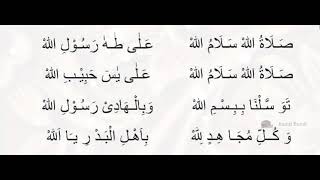 صَلَاةُ اللهْ سَلَامُ اللهْ عَلٰى طٰهٰ رَسُوْلِ اللهْ
صَلَاةُ اللهْ سَلَامُ اللهْ عَلٰى يٰسٓ حَبِيْبِ اللهْ
تَوَ سَّلْنَا بِبِسْمِ اللهْ وَبِالْهَادِىْ رَسُوْلِ اللهْ
وَ كُلِّ مُجَا هِدٍ لِلّٰهْ بِاَهْلِ الْبَدْرِ يَا اَللهْ